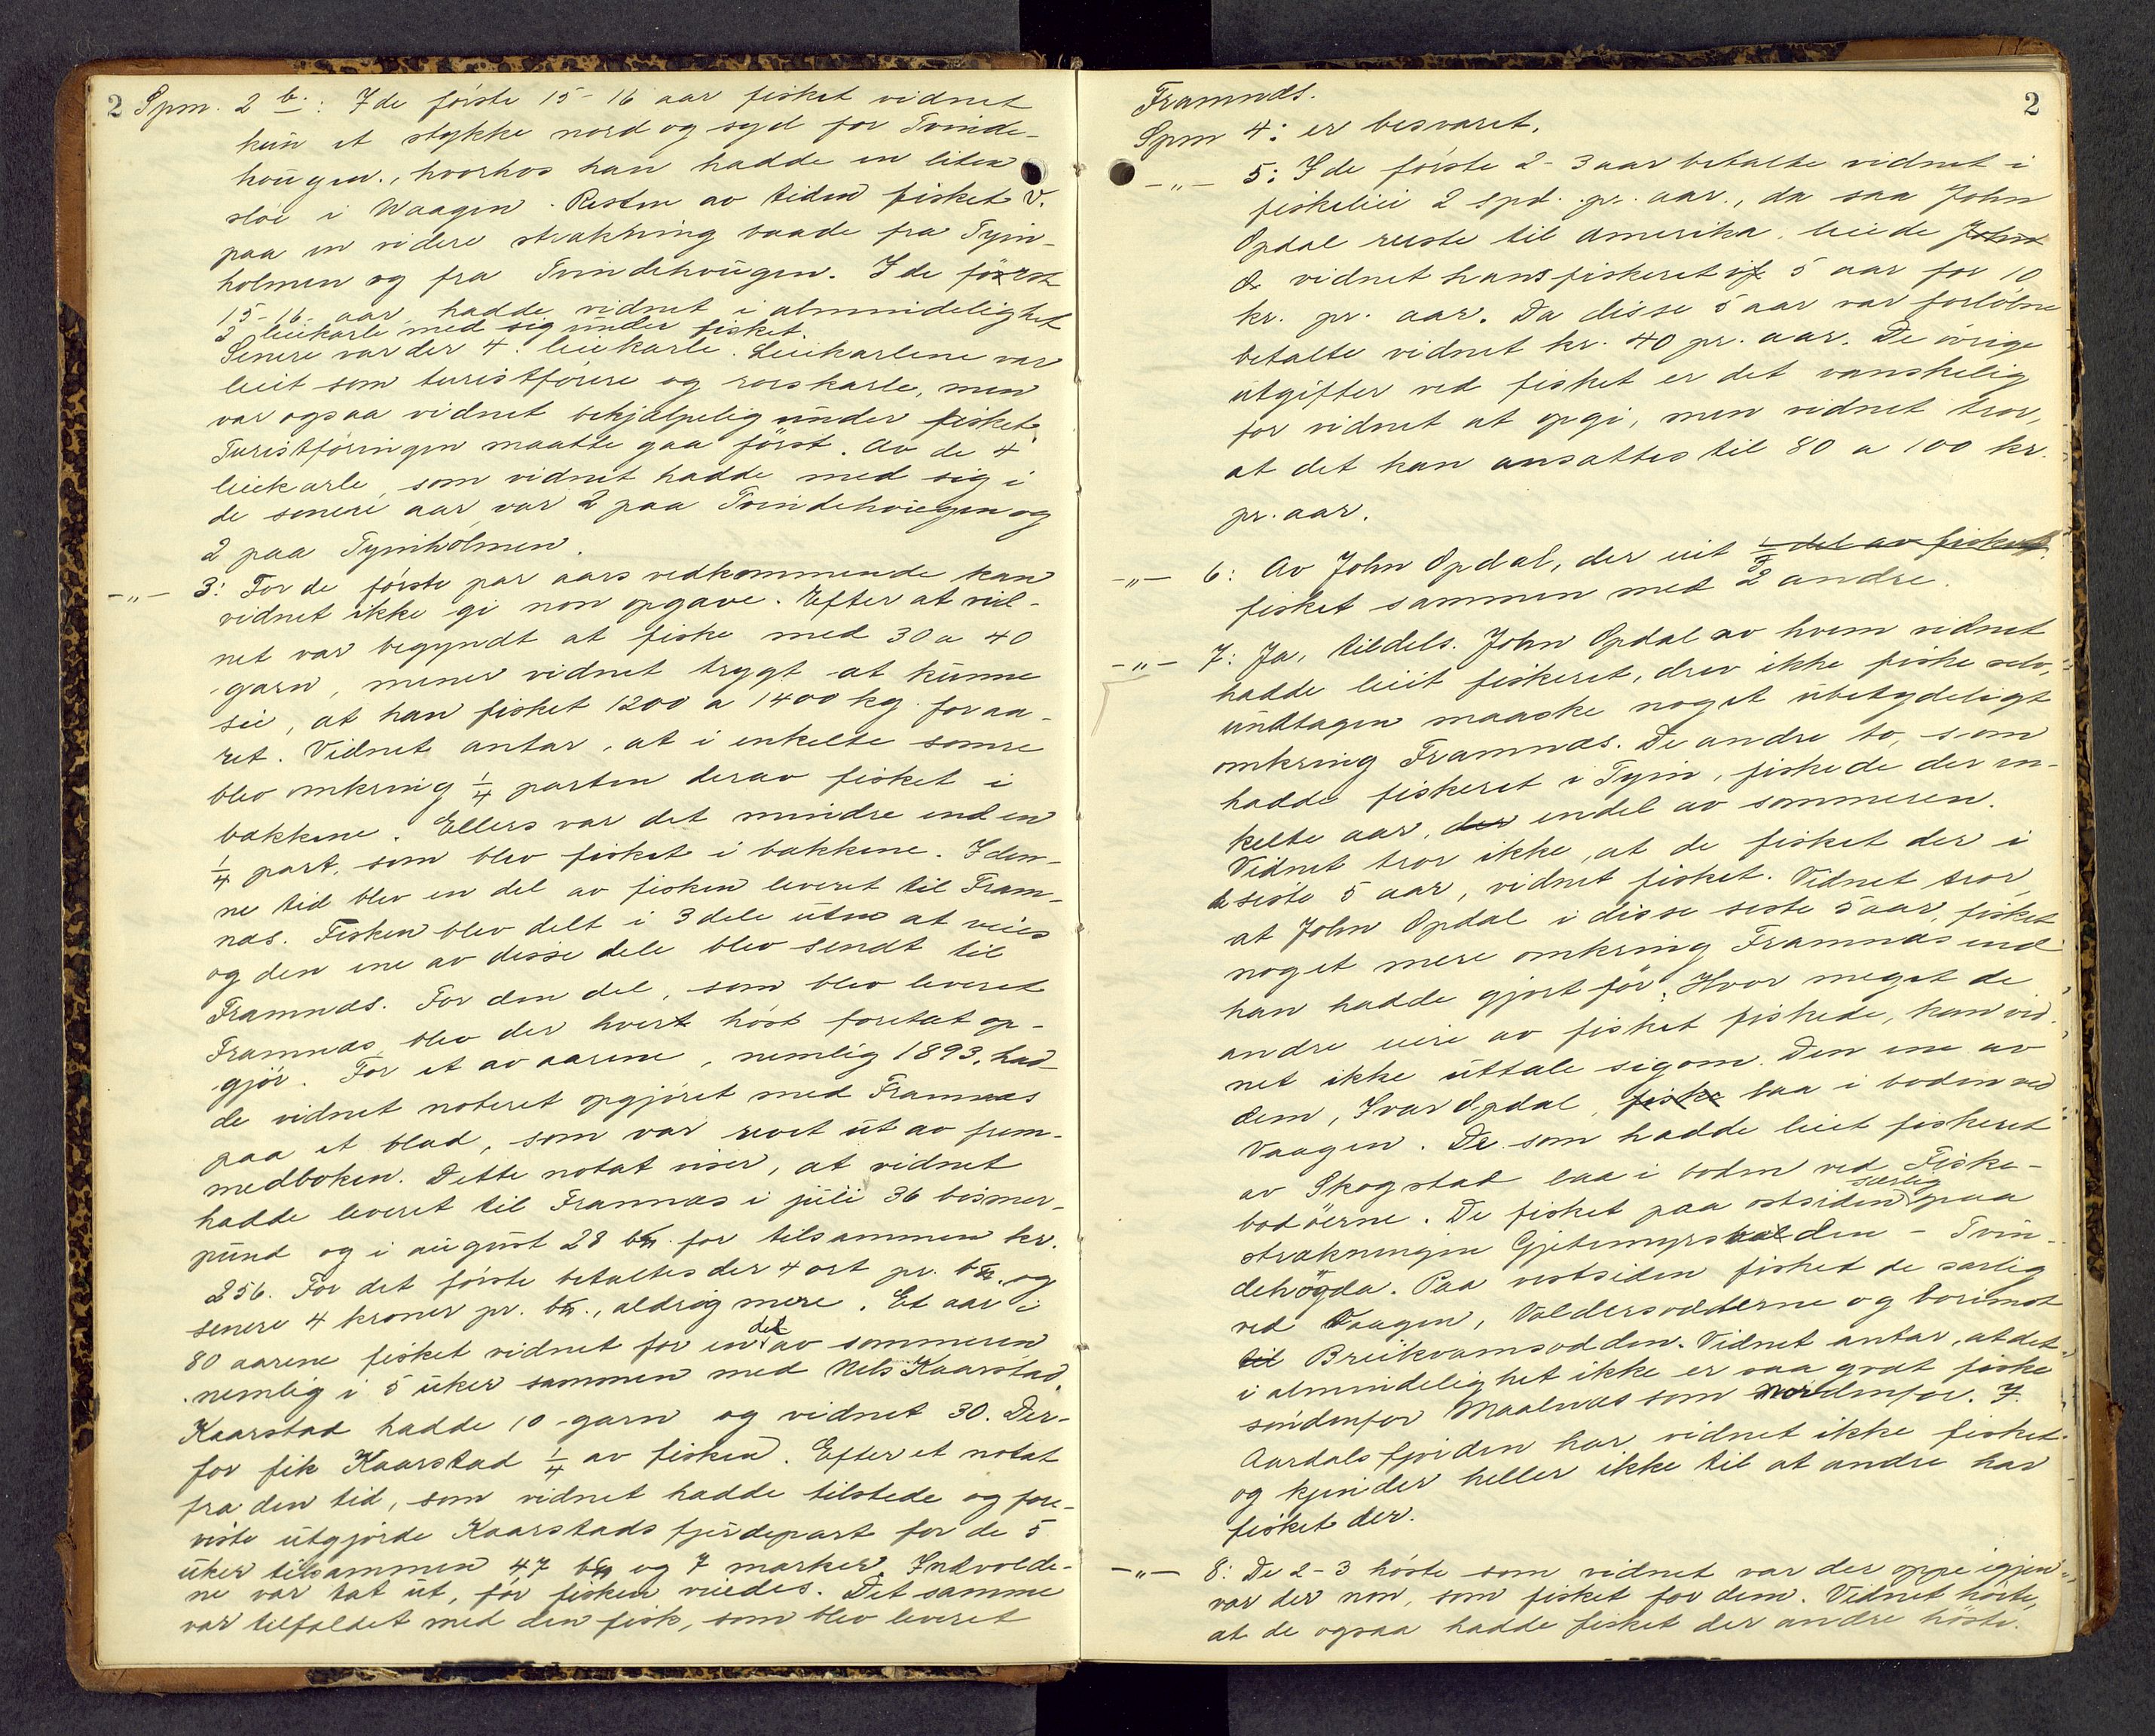 2 Spm. 2 b.: I de første 15-16 aar fisket vidnet
kun et stykke nord og syd for Tvinde-
hougen., hvorhos han hadde en liten
støe i Waagen. Resten av tiden fisket v.
paa en videre strækning baade fra Tyin-
holmen og fra Tvindehougen. I de først
15-16 aar hadde vidnet i almindelighet
2 leiekarle med sig under fisket.
Senere var der 4 leiekarle. Leiekarlene var
leiet som turistførere og rorskarle, men
var ogsaa vidnet behjælpelig under fisket.
Turistføringen maatte gaa først. Av de 4
leiekarle, som vidnet hadde med sig i
de senere aar var 2 paa Tvindehougen og
2 paa Tyinholmen.
-"- 3: For de første par aars vedkommende kan
vidnet ikke gi non opgave. Efter at vid-
net var begyndt at fiske med 30 a 40
garn, mener vidnet trygt at kunne
sie, at han fisket 1200 a 1400 kg. for aa-
ret. Vidnet antar, at i enkelte somre
blev omkring 1/4 parten derav fisket i
bækkene. Ellers var det mindre end en
1/4 part, som blev fisket i bækkene. I den-
ne tid blev en del av fisken leveret til Fram-
næs. Fisken blev delt i 3 dele uten at veies
og den ene av disse dele blev sendt til
Framnæs. For den del, som blev leveret
Framnæs blev der hvert høst foretat op-
gjør. For et av aarene, nemlig 1893, had-
de vidnet noteret opgjøret med Framnæs
paa et blad, som var revet ut av frem-
medboken. Dette notat viser, at vidnet
hadde leveret til Framnæs i juli 36 bismer-
pund og i august 28 b℔. for tilsammen kr.
256. For det første betaltes der 4 ort pr. b℔. og
senere 4 kroner pr. b℔., aldrig mere. Et aar i
80 aarene fisket vidnet for en del av sommeren
nemlig i 5 uker sammen med Nels Kaarstad.
Kaarstad hadde 10 garn og vidnet 30. Der-
for fik Kaarstad 1/4 av fisken. Efter et notat
fra den tid, som vidnet hadde tilstede og fore-
viste utgjorde Kaarstads fjerdepart for de 5
uker tilsammen 47 b℔ og 7 marker. Indvolde-
ne var tat ut, før fisken veiedes. Det samme
var tilfældet med den fisk, som blev leveret
2
Framnæs.
Spm 4: er besvaret.
-"- 5: I de første 2-3 aar betalte vidnet i
fiskeleie 2 spd. pr. aar., da saa John
Opdal reiste til Amerika, leiede John
vidnet hans fiskeret i 5 aar for 10
kr. pr. aar. Da disse 5 aar var forløbne
betalte vidnet kr. 40 pr. aar. De øvrige
utgifter ved fisket er det vanskelig
for vidnet at opgi, men vidnet tror,
at det kan ansættes til 80 a 100 kr.
pr. aar.
-"- 6: Av John Opdal, der eiet 1/3 del av fisket
fisket sammen med 2 andre.
-"- 7: Ja, tildels. John Opdal av hvem vidnet
hadde leiet fiskeret, drev ikke fiske selv,
undtagen maaske noget ubetydeligt
omkring Framnæs. De andre to, som
hadde fiskeret i Tyin, fiskede der en-
kelte aar, der endel av sommeren.
Vidnet tror ikke, at de fisket der i
de siste 5 aar, vidnet fisket. Vidnet tror,
at John Opdal i disse siste 5 aar, fisket
noget mere omkring Framnæs end
han hadde gjort før. Hvor meget de
andre eiere av fisket fiskede, kan vid-
net ikke uttale sig om. Den ene av
dem, Ivar Opdal, fiske laa i boden ved
Vaagen. De som hadde leiet fiskeret
av Skogstad laa i boden ved Fiske-
bodøerne. De fisket paa østsiden særlig paa
strækningen Gjetemyrsodden - Tvin-
dehøgda. Paa vestsiden fisket de særlig
ved Vaagen, Valdersodderne og borimot
til Breikvamsodden. Vidnet antar, at det
i almindelighet ikke er saa godt fiske
søndenfor Maalnæs som nordenfor. I
Aardalsfjorden har vidnet ikke fisket
og kjender heller ikke til at andre har
fisket der.
-"- 8: De 2-3 høste som vidnet var der oppe igjen
var der non, som fisket for dem. Vidnet hørte,
at de ogsaa hadde fisket der andre høste.